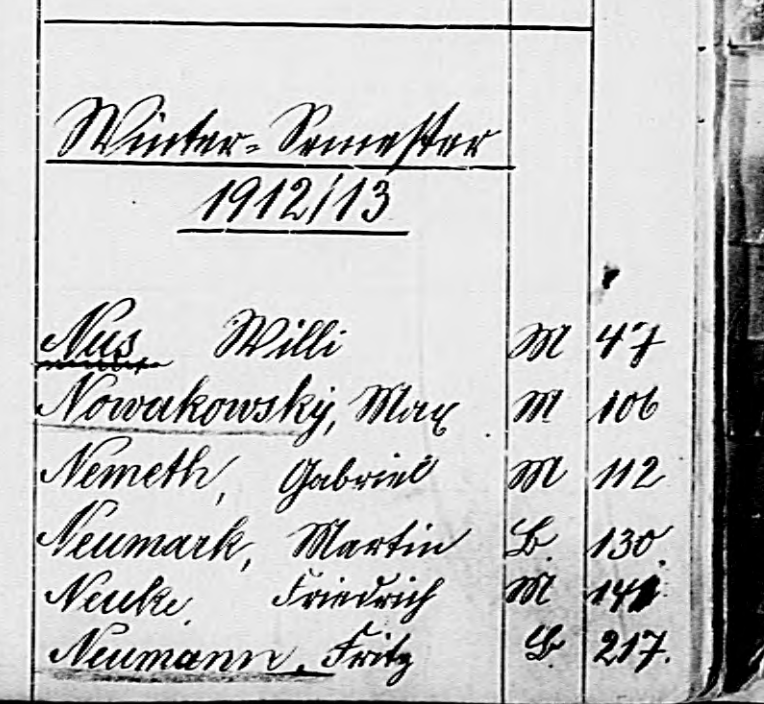 Winter-Semester
1912/13
Nus Willi M 47
Nowakowsky, Max M 106
Nemeth, Gabriel M 112
Neumark, Martin B. 130.
Neuke, Friedrich M
Neumann, Fritz B 217.